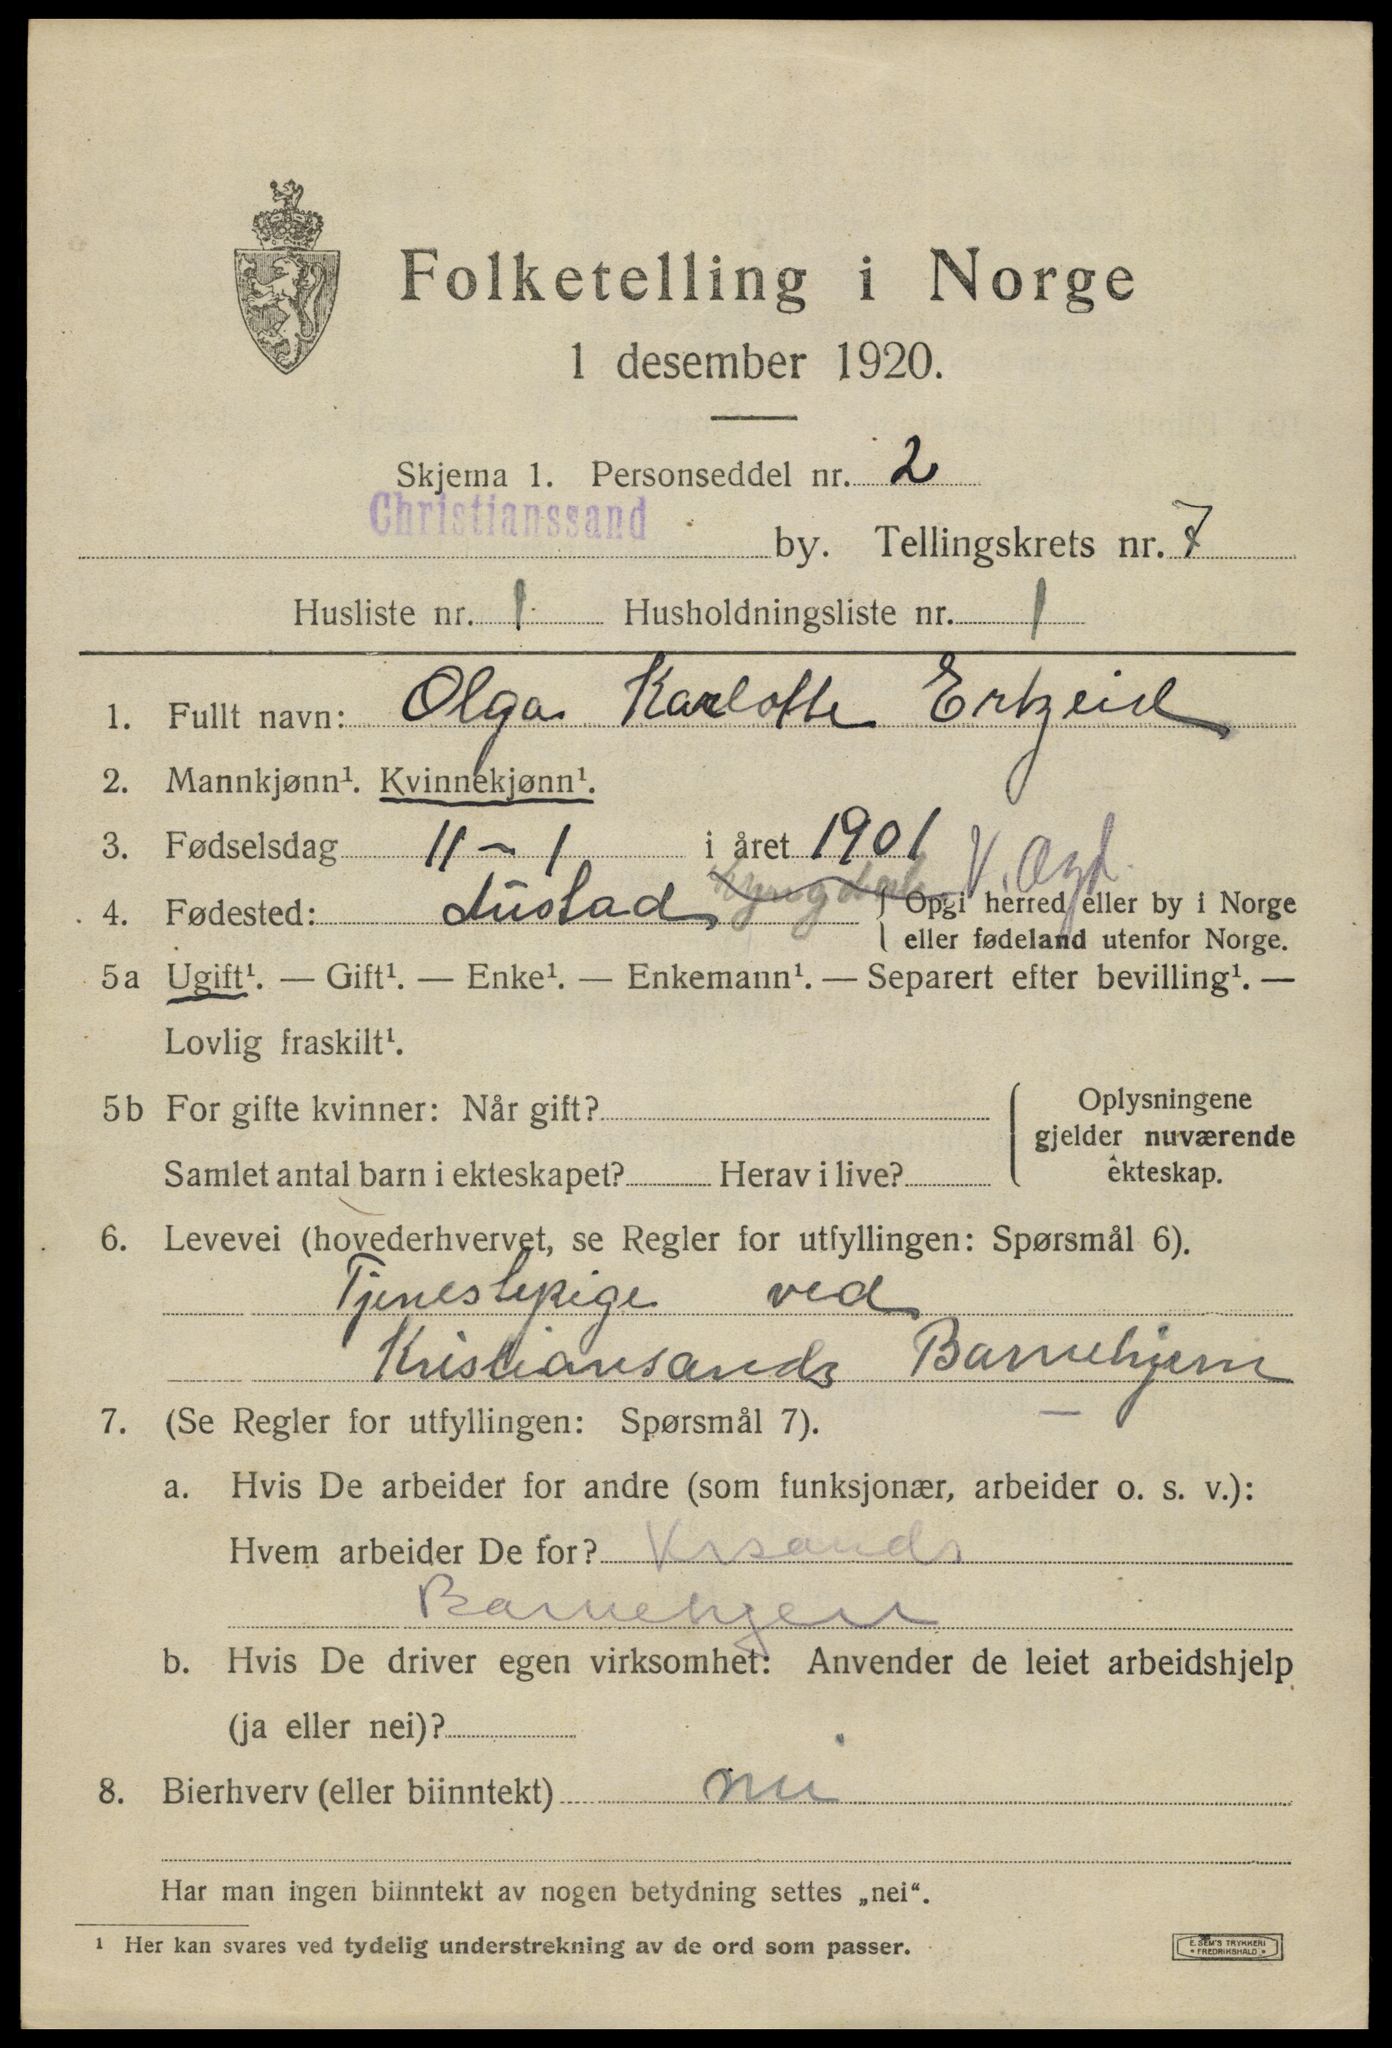 Folketelling i Norge
1 desember 1920.
Skjema 1. Personseddel nr. 2
Christianssand by. Tellingskrets nr. 7
Husliste nr. 1 Husholdningsliste nr. 1
1. Fullt navn: Olga Karlotte
2. Mannkjønn¹. Kvinnekjønn¹.
3. Fødselsdag 11-1 i året 1901 V. Agd.
4. Fødested: Opgi herred eller by i Norge
eller fødeland utenfor Norge.
5a Ugift¹. — Gift¹. — Enke¹. — Enkemann¹. — Separert efter bevilling¹. —
Lovlig fraskilt¹.
5b For gifte kvinner: Når gift?
Samlet antal barn i ekteskapet? Herav i live?
Oplysningene
gjelder nuværende
ekteskap.
6. Levevei (hovederhvervet, se Regler for utfyllingen: Spørsmål 6).
Tjenestepige ved
Kristiansands Barnehjem
7. (Se Regler for utfyllingen: Spørsmål 7).
a. Hvis De arbeider for andre (som funksjonær, arbeider o. s. v.):
Hvem arbeider De for? Krsands
Barnehjem
b. Hvis De driver egen virksomhet: Anvender de leiet arbeidshjelp
(ja eller nei)?
8. Bierhverv (eller biinntekt) nei
Har man ingen biinntekt av nogen betydning settes „nei“.
¹ Her kan svares ved tydelig understrekning av de ord som passer.
E. SEM'S TRYKKERI
* FREDRIKSHALD *